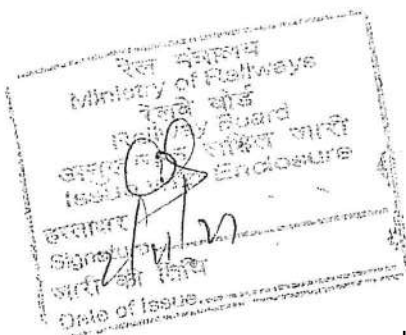 रेल मंत्रालय
Ministry of Railways
रेलवे बोर्ड
Railway Board
सहित जारी
Issued Enclosure
हस्ताक्षर
Signature
जारी की तिथि
Date of Issue